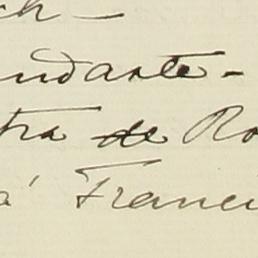 ch -
undante -
tra de Ro
a' Franci